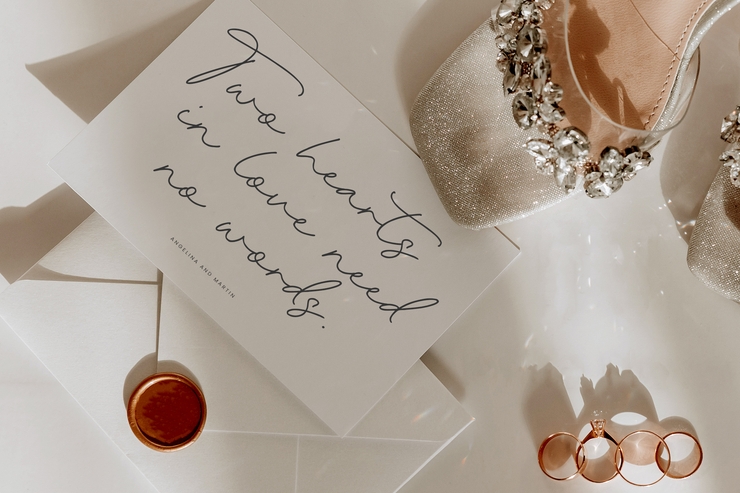 Two hearts
in love need
no words.
ANGELINA AND MARTIN